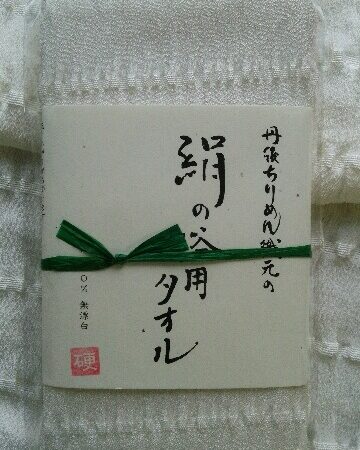 丹後ちりめん織元の
絹の浴用
タオル
〇% 無漂白
硬